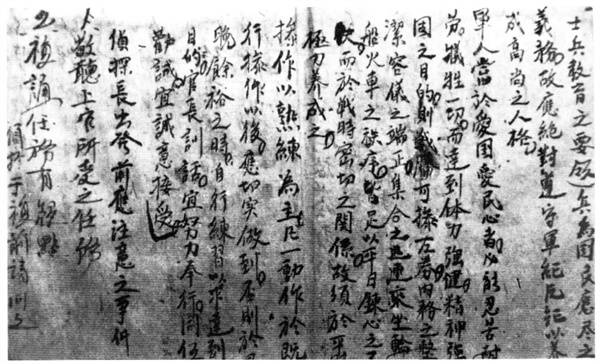 士兵教育之要 兵為国之
義務故應絕對遵守軍紀風紀以养
成高尚之人格
軍人當於愛国愛民心者必能忍苦耐
勞犧牲一切而達到体力強健精神強
固之目的則戰可操左券内務之整
潔容儀之端正集合之迅速乘坐輪
船火車之旅皆足以平日鍊心之
而於战時密切之関係故須於平
極力养成之
操作以熟練為主凡一動作於既
行操作以後應切实做到否則於
晚餘裕之時自行練習以求達到
目的官長訓話宜努力奉行同伍
勸誡宜誠意接受
偵探長出發前應注意之事件
敬聽上官所受之任務
2 複誦任務有疑點